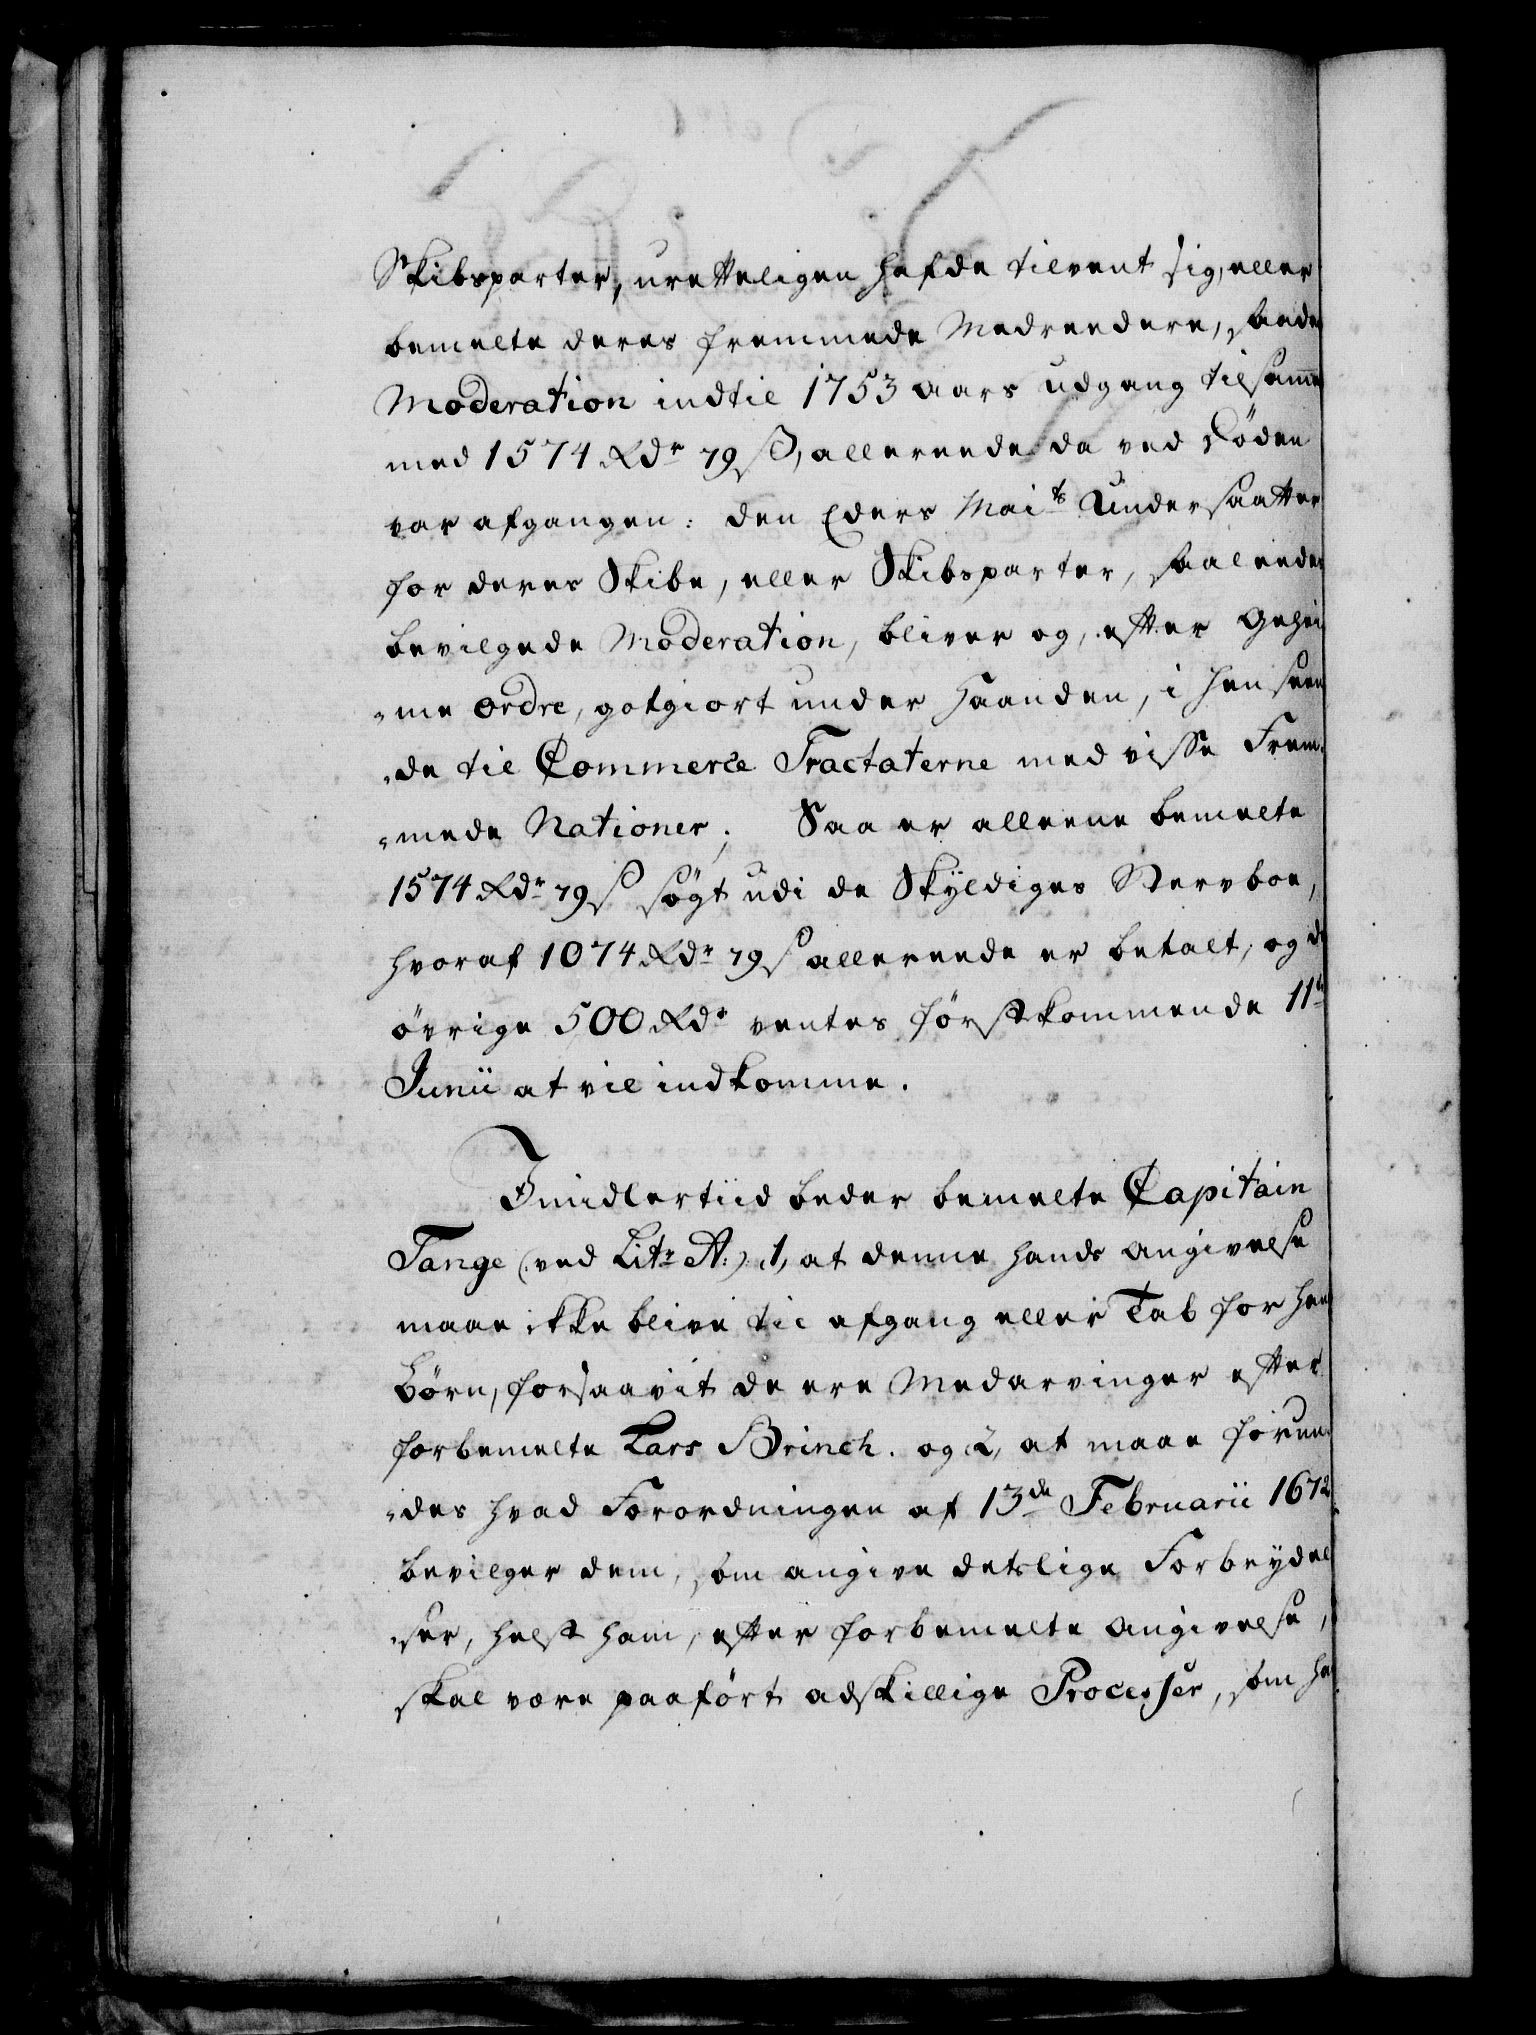 Skibsparter, uretteligen hafde tilvent sig, eller
bemelte deres fremmede Medreedere, saadan
Moderation indtil 1753 aars udgang tilsamen
med 1574 Rdr 79 ß, allereede da ved døden
var afgangen: den Eders Maits Undersaatter
for deres Skibe, eller Skibsparter, saaleedes
bevilgede Moderation, bliver og, efter Gehei
„me ordre, gotgiort under Haanden, i henseen
„de til Commerce Tractaterne med visse Frem
„mede Nationer; Saa er alleene bemelte
1574 Rdr 79 ß søgt udi de Skyldiges Stervboe,
hvoraf 1074 Rdr 79 ß allereede er betalt, og de
øvrige 500 Rdr ventes førstkommende 11te
Junii at vil indkomme.
Imidlertiid beder bemelte Capitain
Tange (ved Litr A:) 1, at denne hands Angivelse
maae ikke blive til afgang eller Tab for hans
Børn, forsaavit de ere Medarvinger efter
forbemelte Lars Brinch. og 2, at maae forun
„des hvad Forordningen af 13de Februarii 1672
bevilger dem, som angive detslige Forbrydel
„ser, helst ham, efter forbemelte Angivelse,
skal være paaført adskillige Processer, som ha